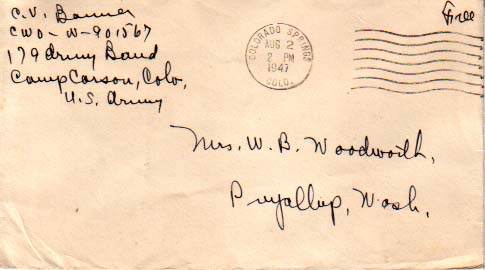 C. V. Bonner
CWO-W-901567
179 Army Band
Camp Carson, Colo,
U.S. Army
COLORADO SPRINGS
AUG 2
2 PM
1947
COLO.
Free
Mrs. W. B. Woodworth,
Puyallup, Wash.